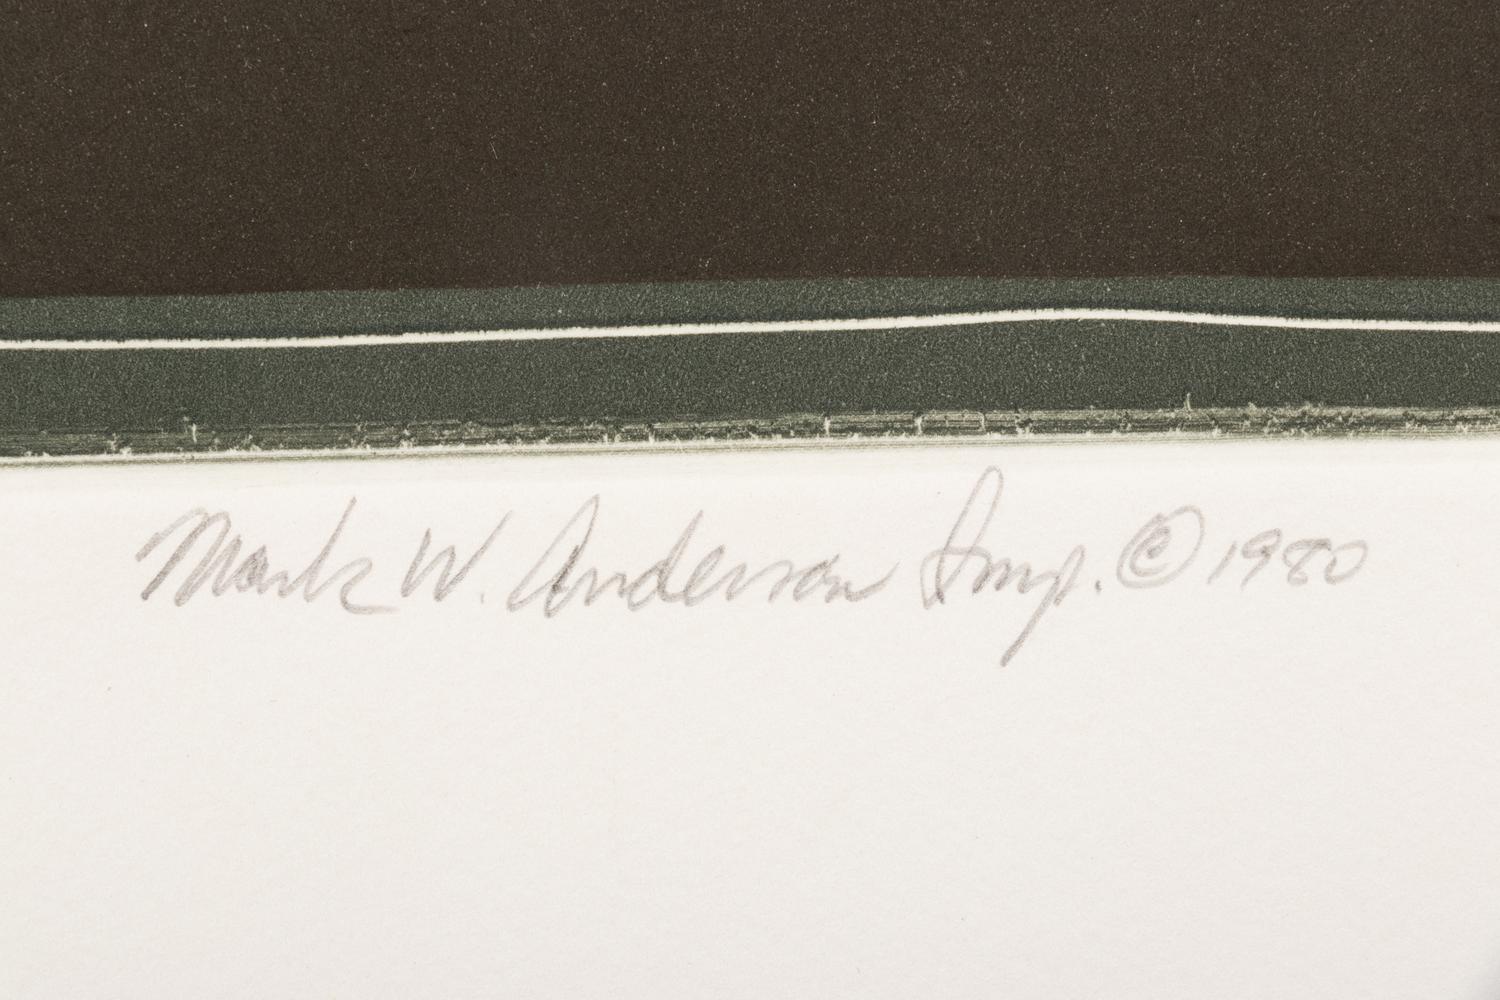 Mark W. Anderson Imp. © 1980